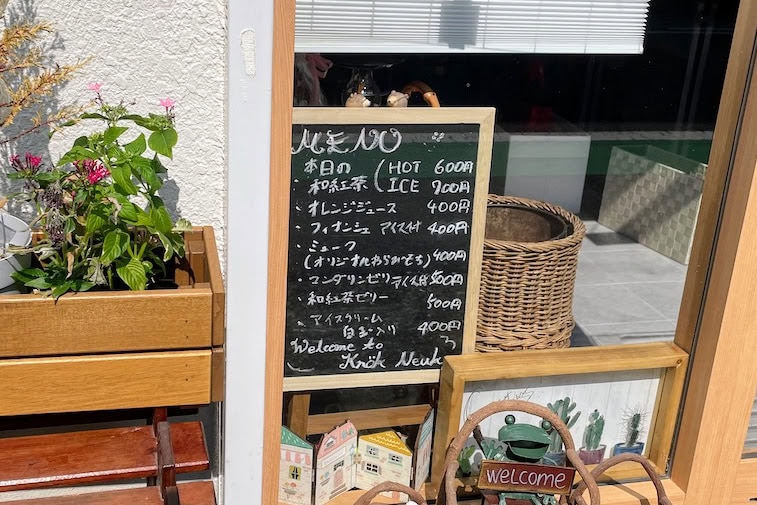 MENU
本日の HOT 600円
和紅茶 ICE 700円
・オレンジジュース 400円
・フィナンシェ アイス付 400円
・ミューク
(オリジナルわらびもち) 400円
・マンダリンゼリー アイス付 500円
・和紅茶ゼリー 500円
・アイスクリーム
白玉入り 400円
Welcome to
Knök
WELCOME